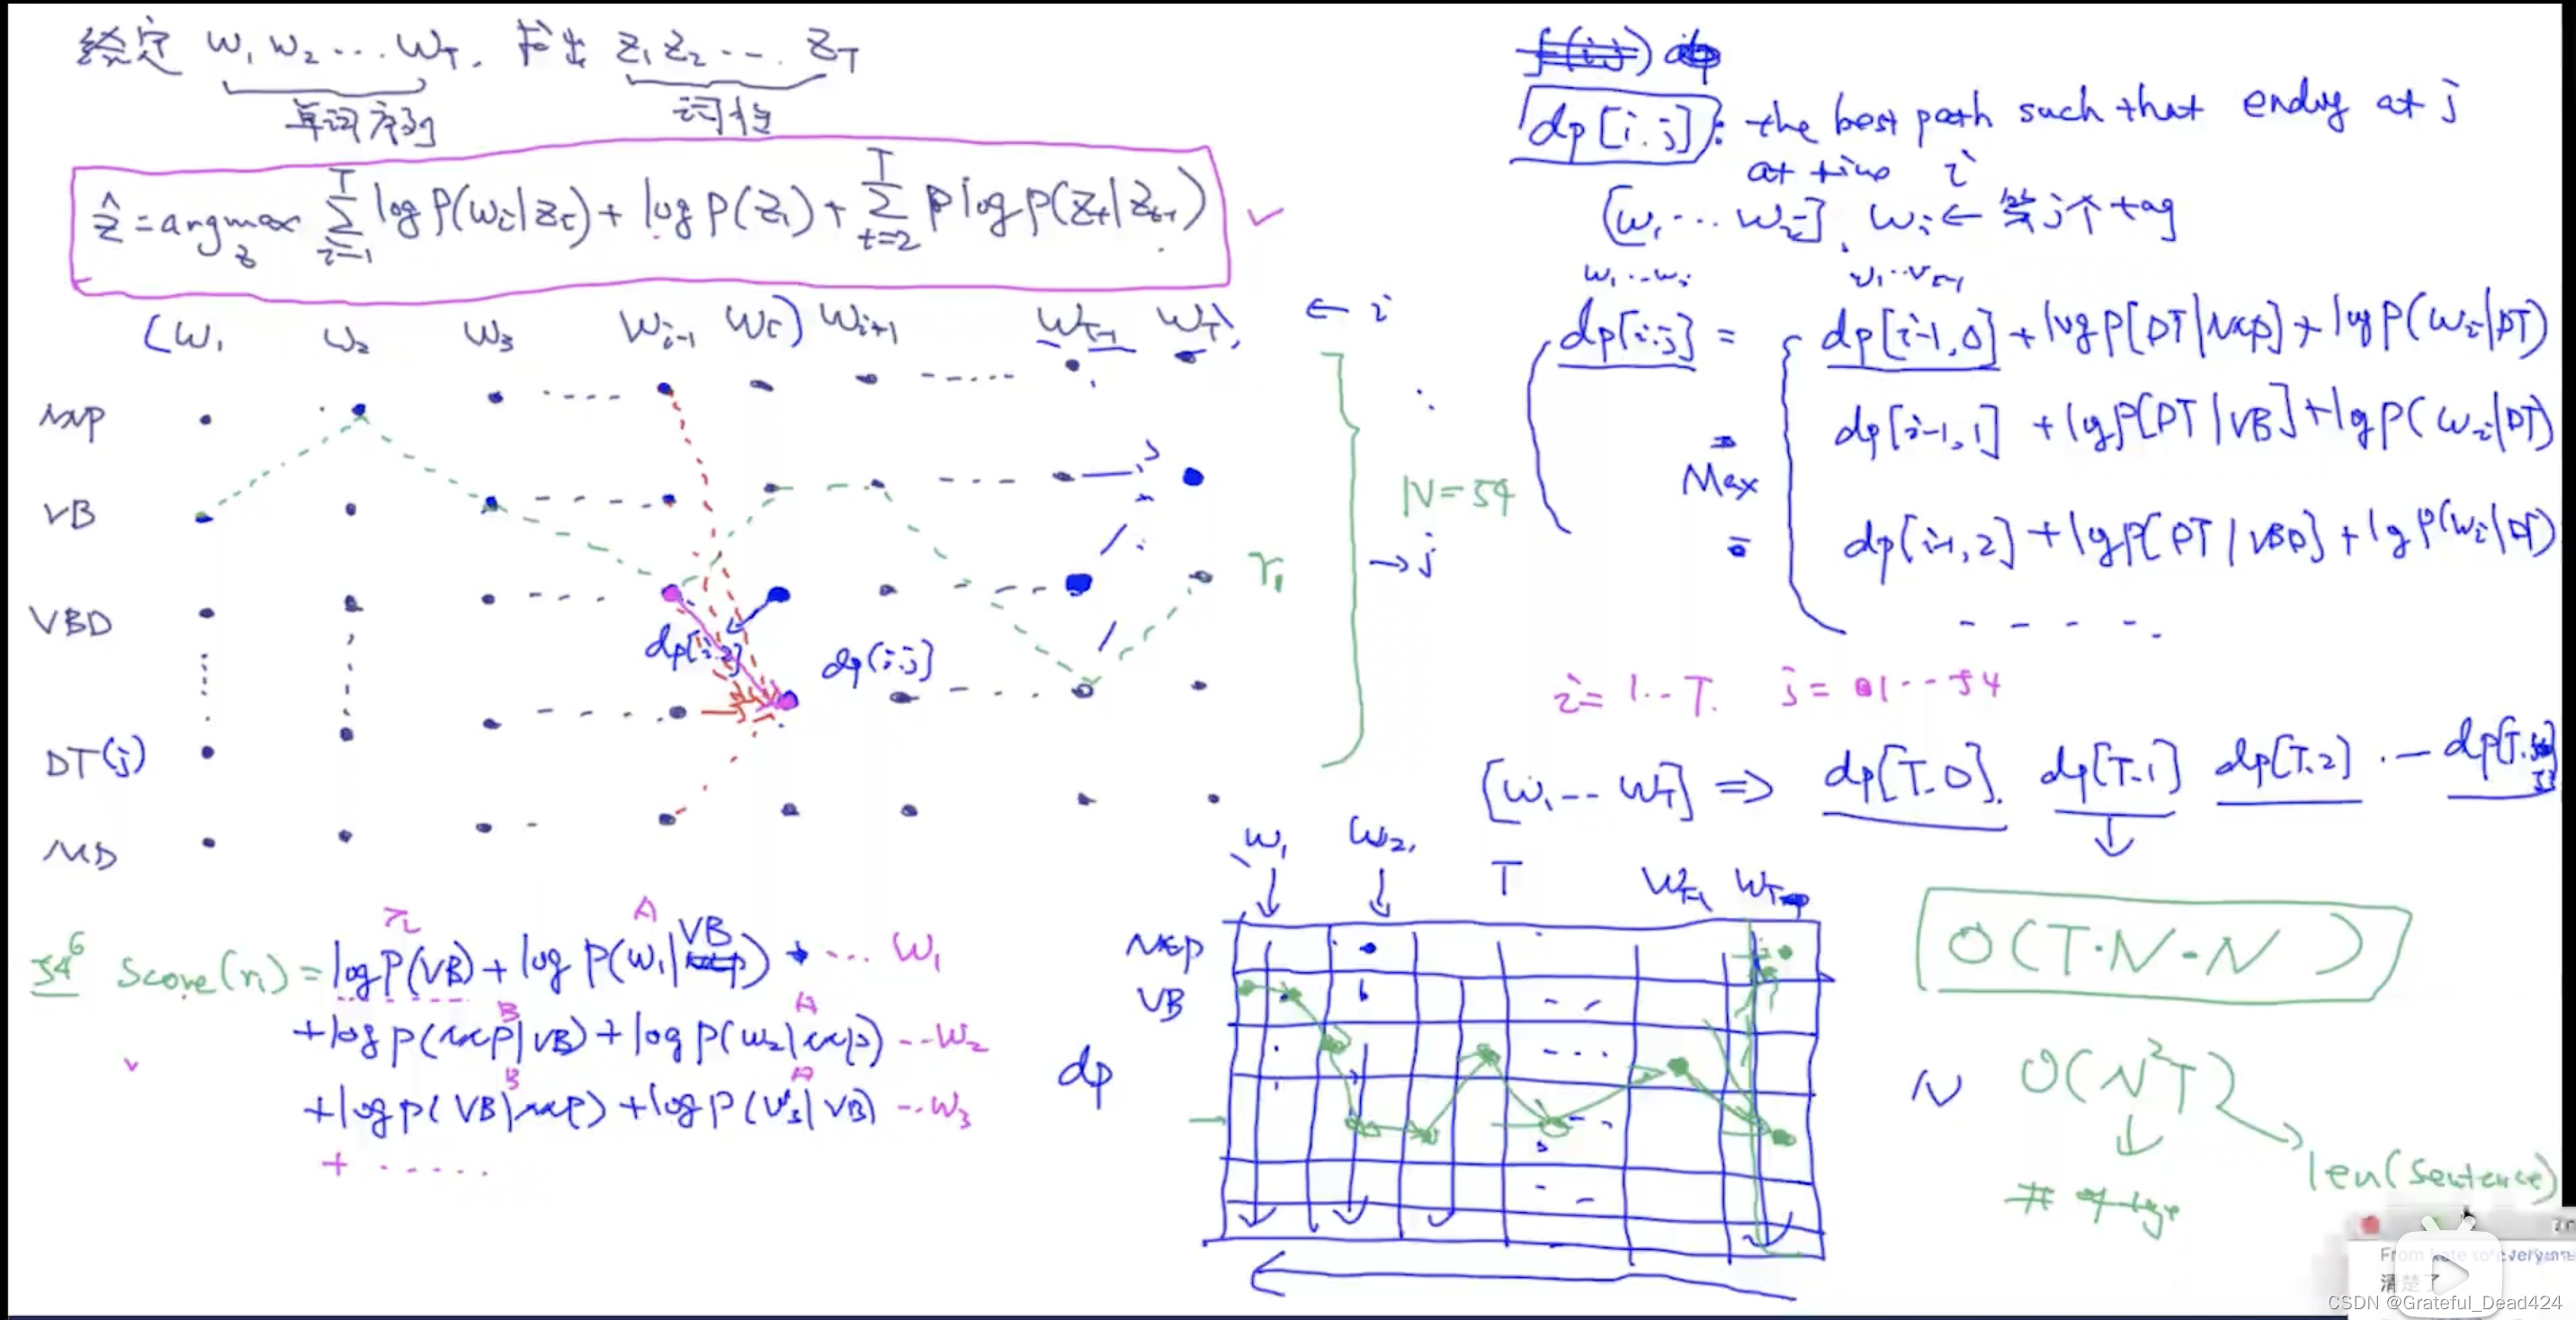 给定 w₁ w₂ … w_T, 求出 z₁ z₂ … z_T
单词序列 词性
ẑ = argmax_z Σ_{i=1}^{T} log P(w_i|z_i) + log P(z_1) + Σ_{t=2}^{T} P log P(z_t|z_{t-1}) ✓
(w₁ w₂ w₃ w_{i-1} w_i) w_{i+1} w_{T-1} w_T, ← i
NNP
VB
N=54
VBD
γ₁ → j
dp[i.2] dp(i.j)
DT(j)
MD
54⁶ Score(r₁) = log P(VB) + log P(w₁|VB) + … w₁
π A
+ log P(NNP|VB) + log P(w₂|NNP) -- w₂
B A
+ log P(VB|NNP) + log P(w₃|VB) -- w₃
B A
+ ……
f(i,j) dp
dp[i.j]: the best path such that ending at j
at time i
[w₁ … w_i]. w_i ← 第j个tag
w₁ … w_i
dp[i.j] = dp[i-1,0] + log P[DT|NNP] + log P(w_i|DT)
dp[i-1,1] + log P[DT|VB] + log P(w_i|DT)
Max
dp[i-1,2] + log P[DT|VBD] + log P(w_i|DT)
- - - - -
i = 1 -- T. j = 1 -- 54
[w₁ -- w_T] ⇒ dp[T.0]. dp[T.1] dp[T.2] . — dp[T.53]
w₁ w₂, T w_{T-1} w_T
NNP
VB
dp
O(T·N·N)
N O(N²T)
len(sentence)
# of tags
清楚了
CSDN @Grateful_Dead424